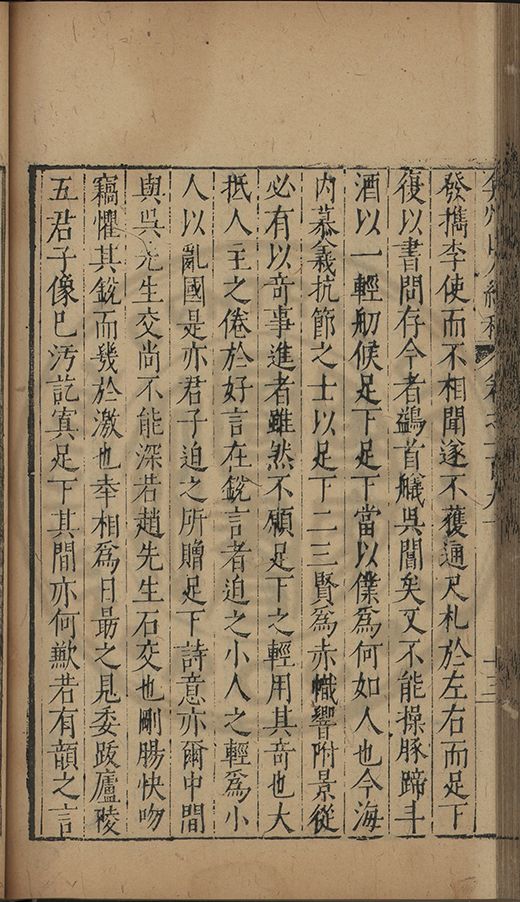 弇州山人續稿 卷之一百九十 十三
發擕李使而不相聞遂不獲通尺札於左右而足下
復以書問存今者鷁首艤吳閶矣又不能操豚蹄斗
酒以一輕舠候足下足下當以僕爲何如人也今海
內慕義抗節之士以足下二三賢爲赤幟響附景從
必有以奇事進者雖然不願足下之輕用其奇也大
抵人主之倦於好言在銳言者迫之小人之輕爲小
人以亂國是亦君子迫之所贈足下詩意亦爾中間
與吳先生交尚不能深若趙先生石交也剛腸快吻
竊懼其銳而㡬於激也幸相爲日最之見委跋廬陵
五君子像已汚訖寘足下其間亦何歉若有韻之言